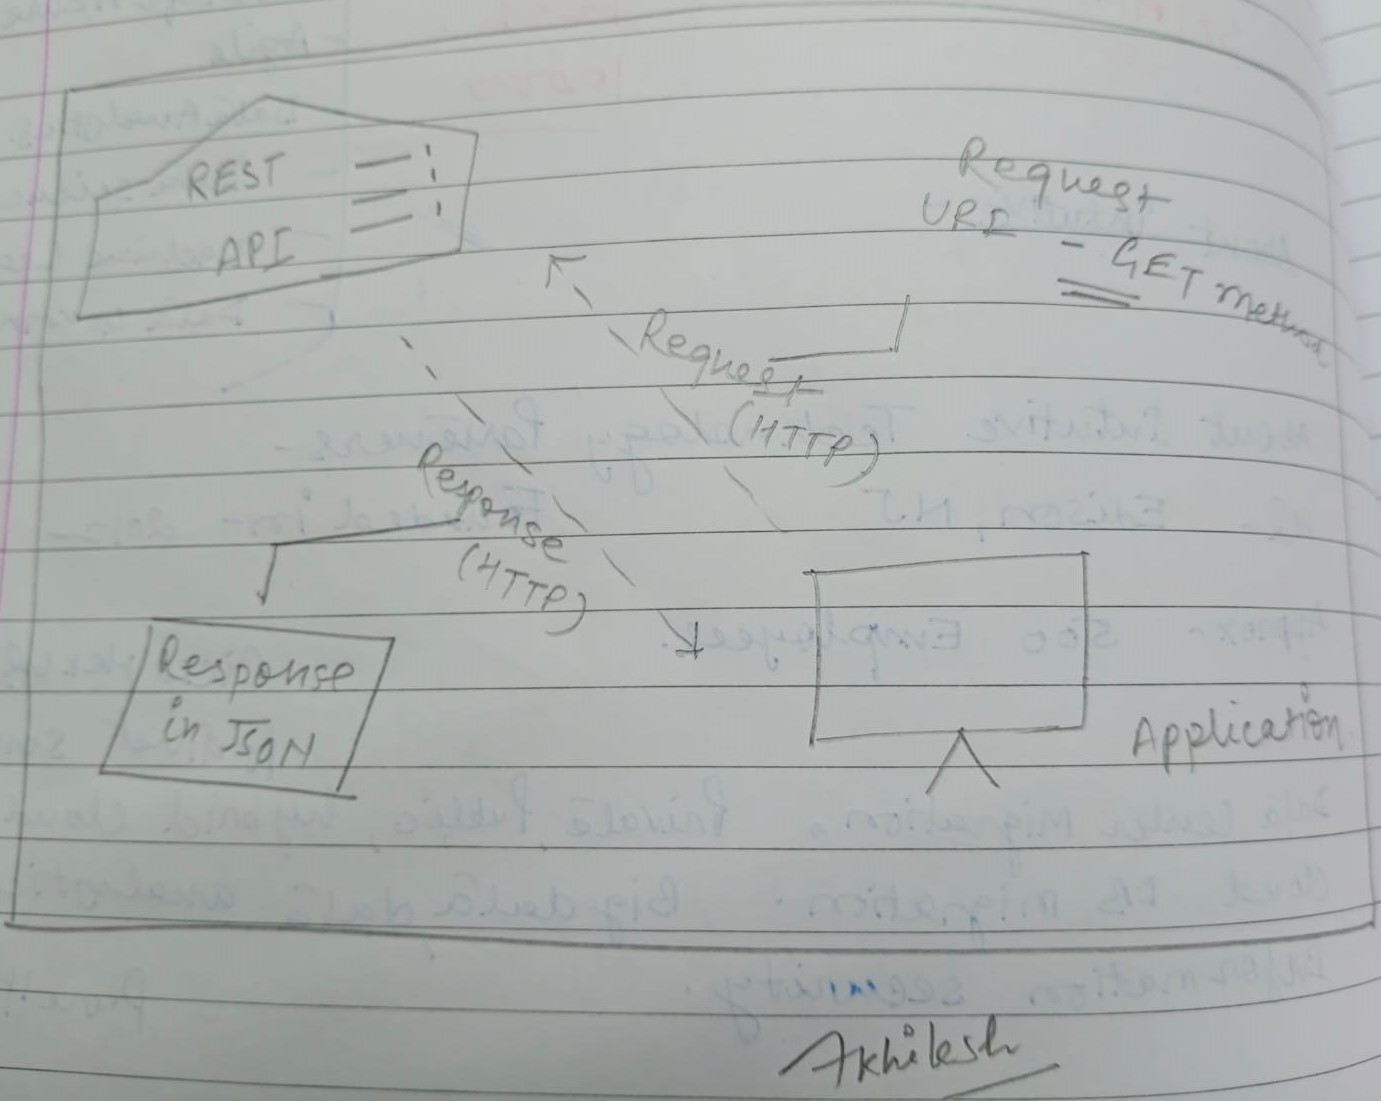 REST
API
Request
URI - GET Method
Request
(HTTP)
Response
(HTTP)
Response
in JSON
Application
Akhilesh